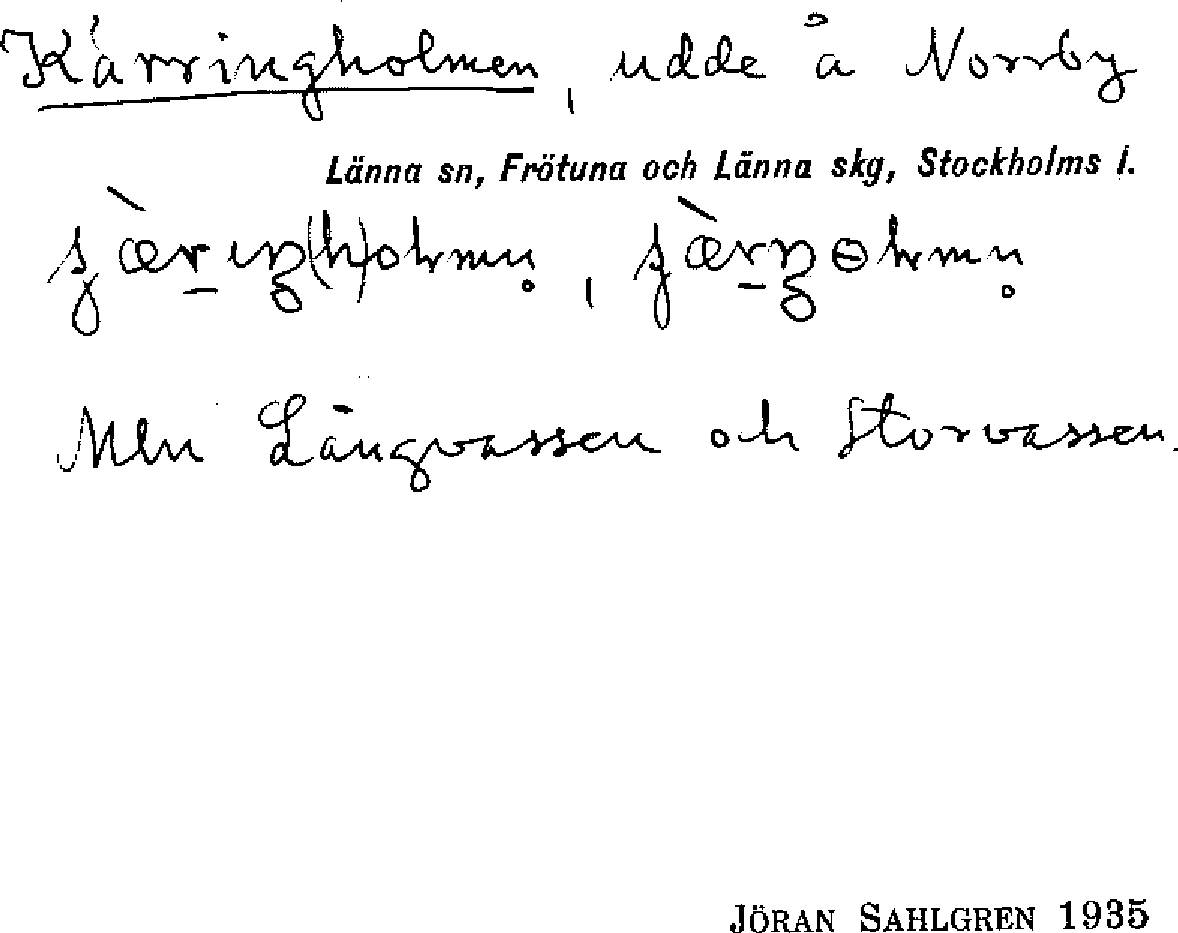 Kärringholmen, udde å Norrby
Länna sn, Frötuna och Länna skg, Stockholms l.
Mln Långvassen och Storvassen.
JÖRAN SAHLGREN 1935